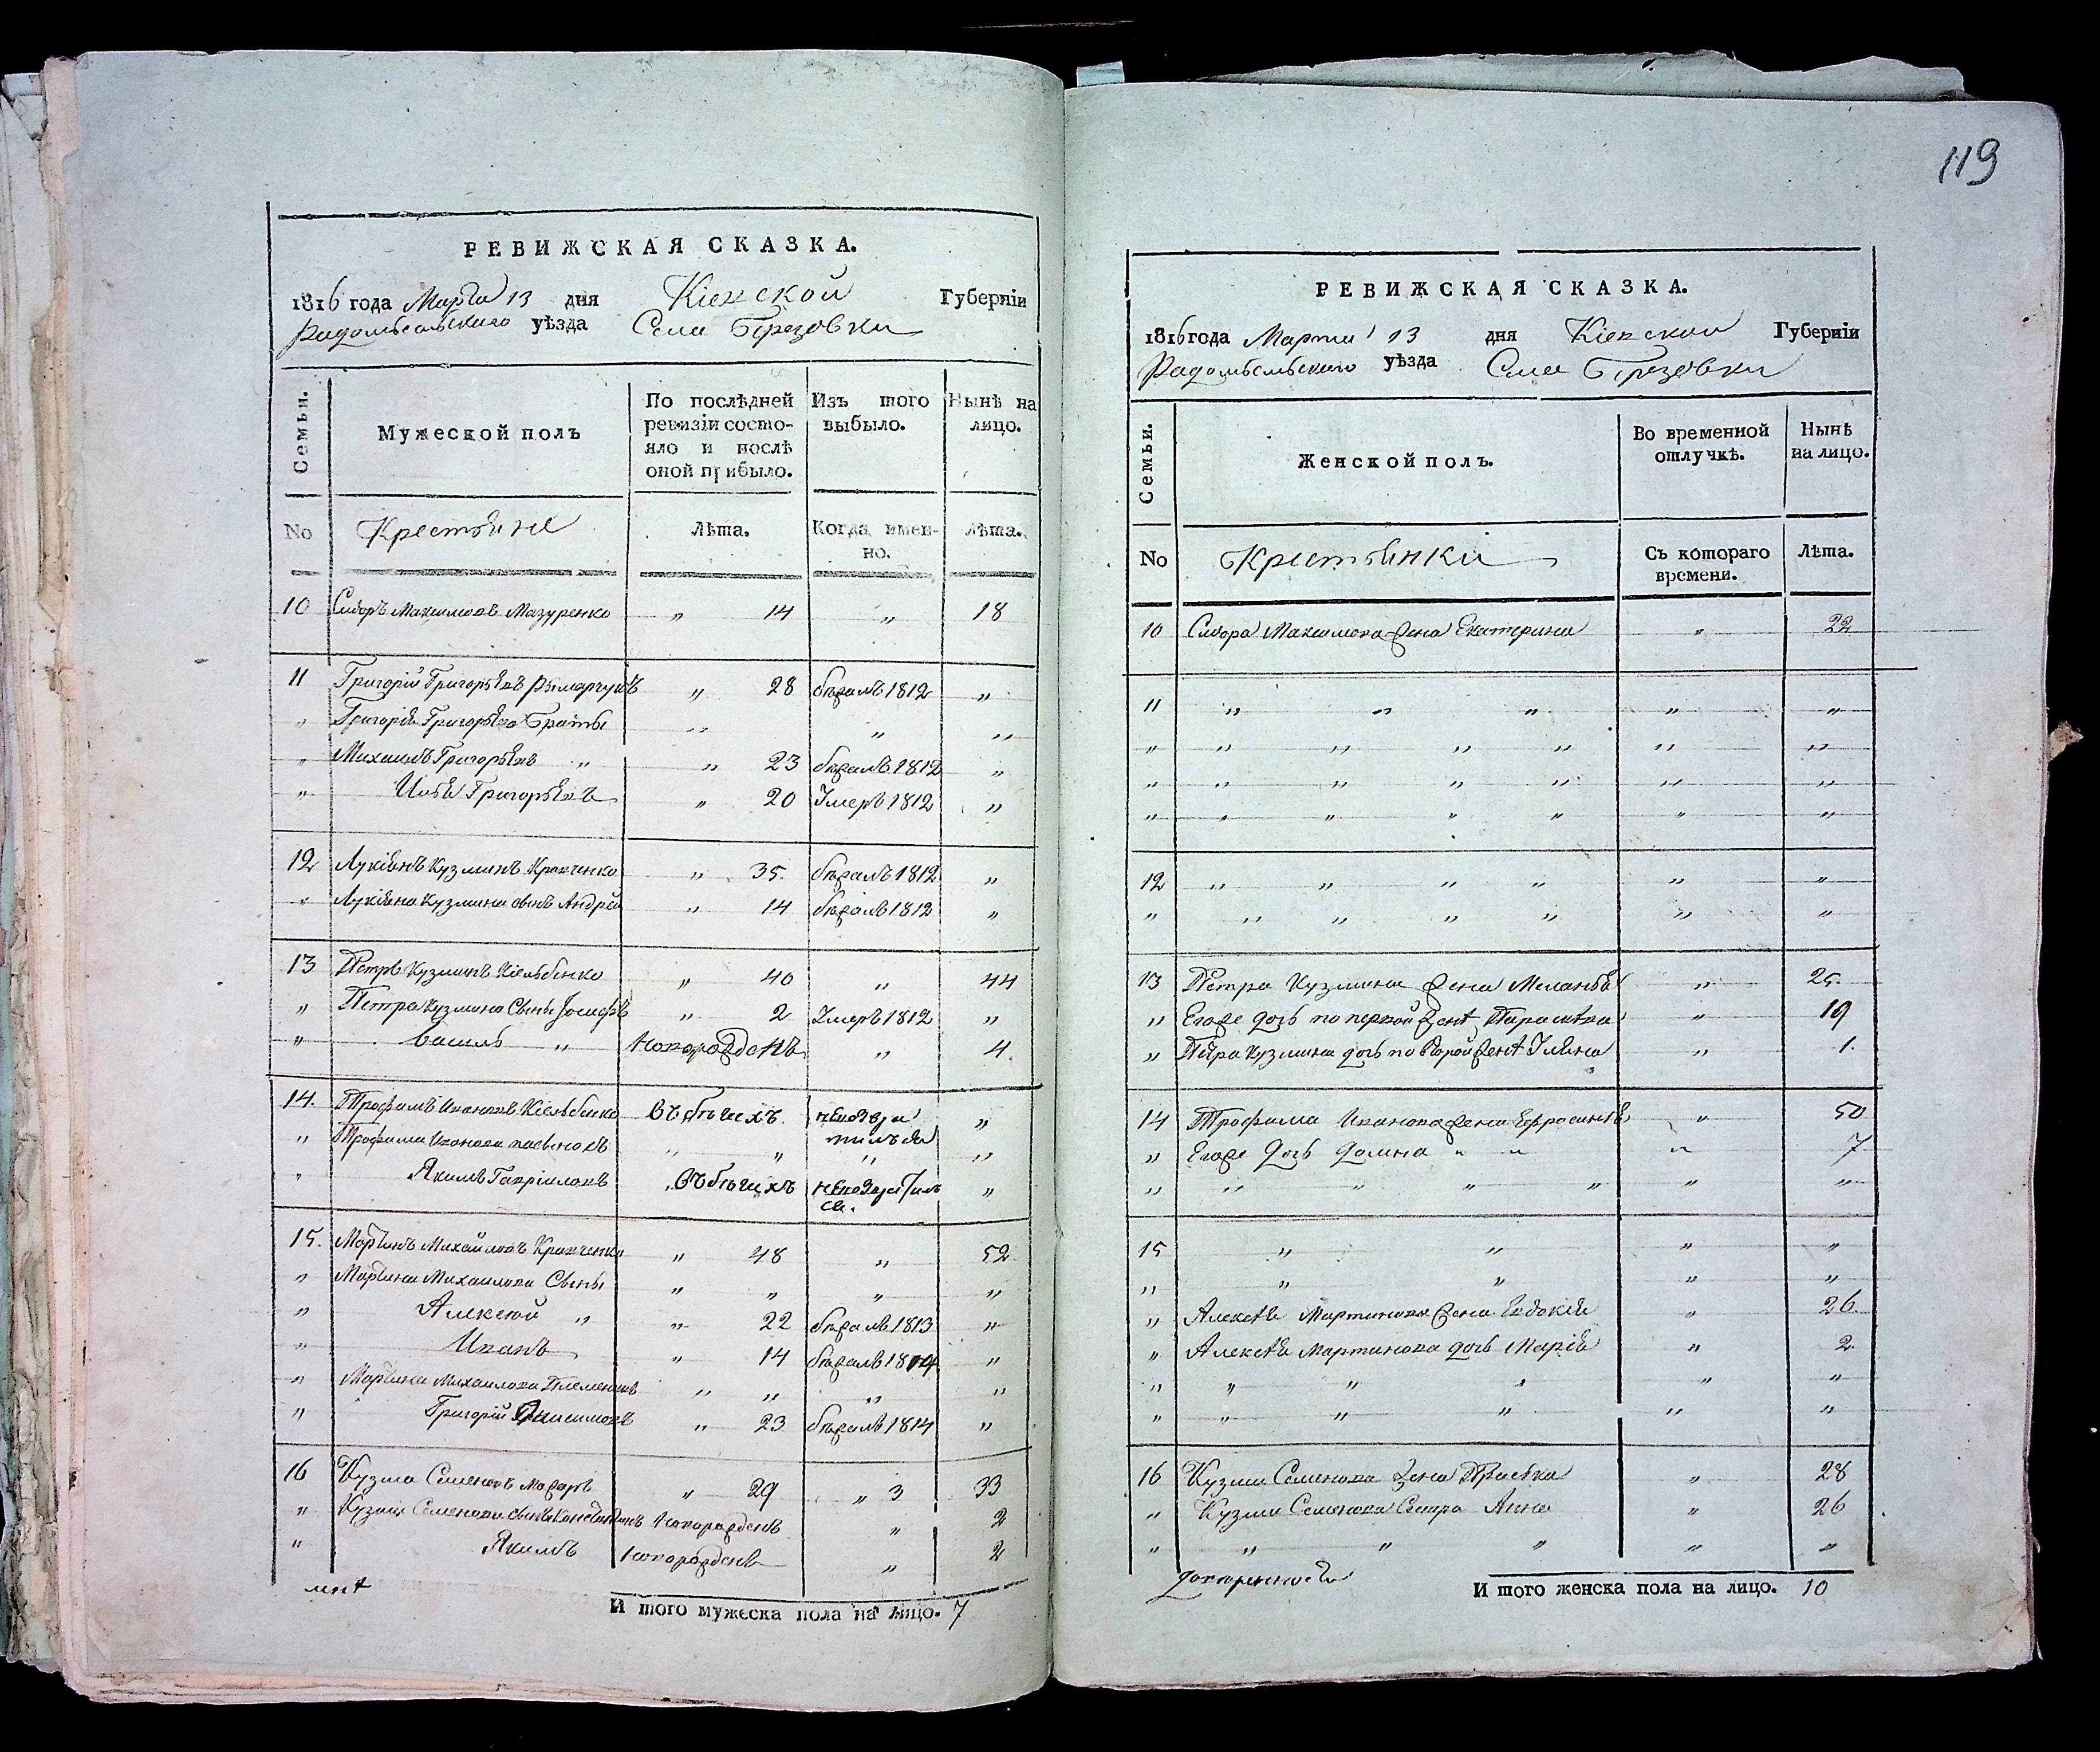 119
РЕВИЖСКАЯ СКАЗКА.
1816 года Марта 13 дня Кіевской Губерніи
Радомысльского уѣзда Села Березовки
Семьи.
Мужеской полъ
По послѣдней ревизіи состояло и послѣ оной прибыло.
Изъ того выбыло.
Нынѣ на лицо.
No Крестьяне Лѣта. Когда именно. Лѣта.
10 Сидоръ Максимовъ Мазуренко „ 14 „ 18
11 Григорій Григорьевъ Рымарчукъ „ 28 бѣжалъ 1812 „
„ Григорія Григорьева Браты „ „ „
„ Михаилъ Григорьевъ „ „ 23 бѣжалъ 1812 „
„ Григорьевъ „ 20 Умеръ 1812 „
12 Лукіянъ Кузминъ Кравченко „ 35. бѣжалъ 1812 „
„ Лукіяна Кузмина сынъ Андрей „ 14 бѣжалъ 1812 „
13 Петръ Кузминъ Кіельбенко „ 40 „ 44
„ Петра Кузмина Сыны Іосифъ „ 2 Умеръ 1812 „
„ Василь „ Новорожденъ „ 4.
14. Трофимъ Ивановъ Кіельбенко Въ бѣгахъ невозвра
тилься „
„ Трофима Иванова пасынокъ „ „ „ „
„ Якимъ Гавріиловъ „ Въ бѣгахъ невозвратил
ся. „
15. Мартинъ Михайловъ Кравченко „ 48 „ 52
„ Мартина Михаилова Сыны „ „ „ „
„ Алексей „ „ 22 бѣжалъ 1813 „
„ Иванъ „ 14 бѣжалъ 1814 „
„ Мартина Михаилова Племенникъ „ „ „ „
„ Григорій Анисимовъ „ 23 бѣжалъ 1814 „
16 Кузма Семеновъ „ 29 „ 3 33
„ Кузми Семенова сынъ Константинъ Новорожденъ „ 2
„ Якимъ Новорожденъ „ 2
И того мужеска пола на лицо. 7
РЕВИЖСКАЯ СКАЗКА.
1816 года Марта 13 дня Кіевской Губерніи
Радомысльского уѣзда Села Березовки
Семьи.
Женской полъ.
Во временной отлучкѣ.
Нынѣ на лицо.
No Крестьянки Съ котораго времени. Лѣта.
10 Сидора Максимова жена Екатерина „ 22
11 „ „ „ „ „
„ „ „ „ „ „ „
„ „ „ „ „ „ „
„ „ „ „ „ „ „
12 „ „ „ „ „ „
„ „ „ „ „ „ „
13 Петра Кузмина жена Меланья „ 25.
„ Егоже дочь по первой женѣ Параскѣва „ 19
„ Петра Кузмина дочь по второй женѣ Уляна „ 1.
14 Трофима Иванова жена Ефросинья „ 50
„ Егоже дочь Домна „ „ „ 7
„ „ „ „ „ „ „
15 „ „ „ „
„ „ „ „ „
„ Алексѣя Мартинова жена Евдокія „ 26
„ Алексѣя Мартинова дочь Марія „ 2.
„ „ „ „ „ „
„ „ „ „ „ „
16 Кузми Семенова жена „ 28
„ Кузми Семенова Сестра Анна „ 26
„ „ „ „ „ „
И того женска пола на лицо. 10